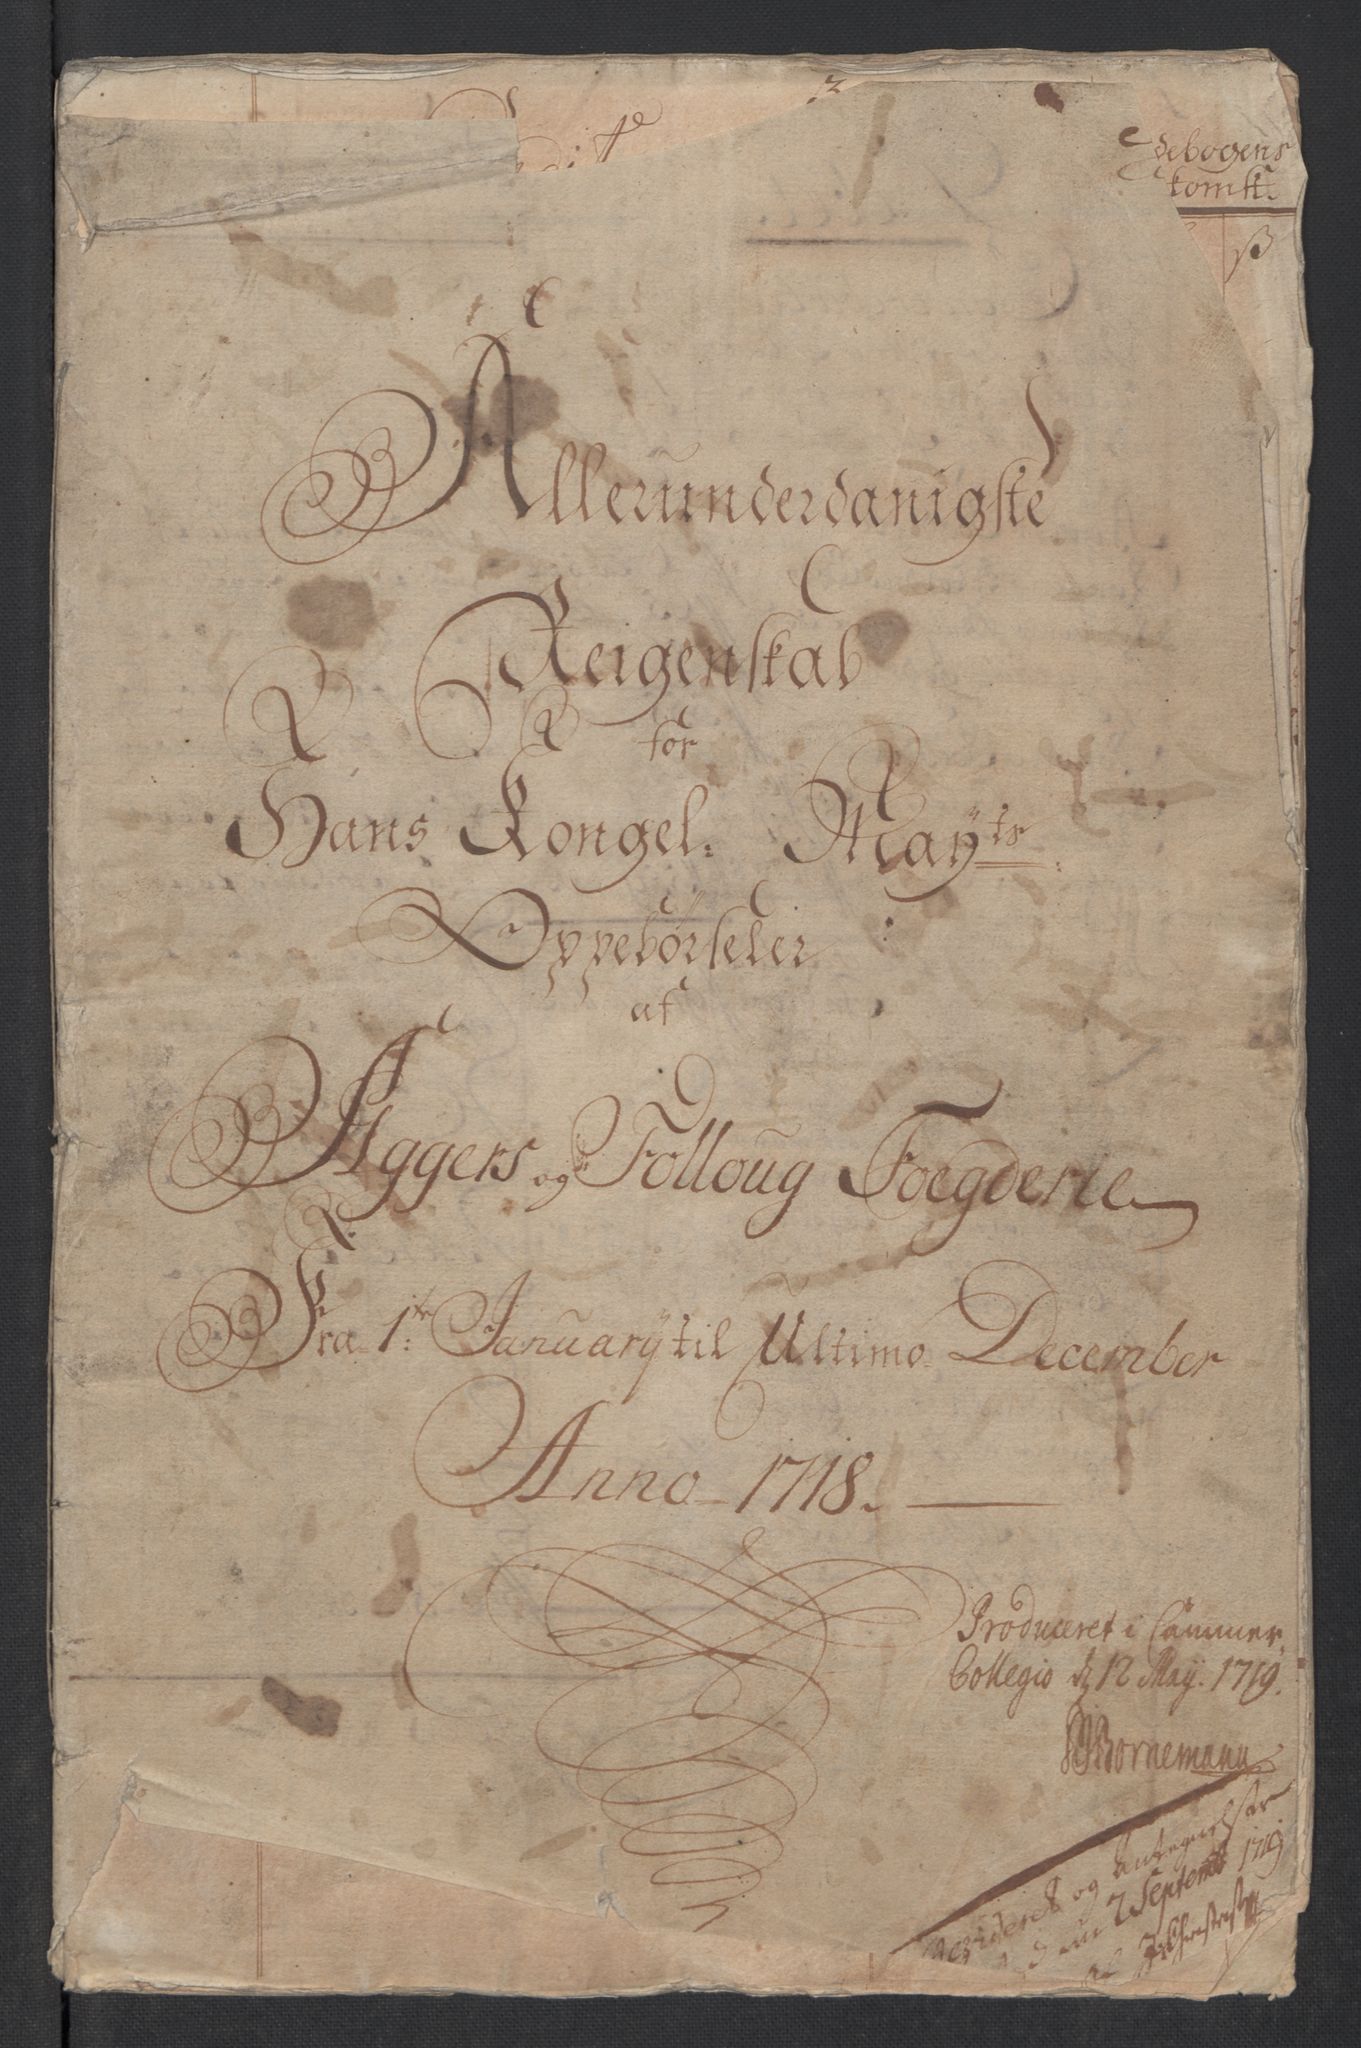 debogens
komst.
Allerunderdanigste
Reigenskab
for
Hans Kongel: Mayts
Oppebørseler
af
Aggers og Folloug Foegderie
Fra 1te January til Ultimo December
Anno 1718.
Produceret i Cammer
Collegio d 12 May. 1719.
Bornemann
Revideret og Antegnelser
d 2 Septemb 1719